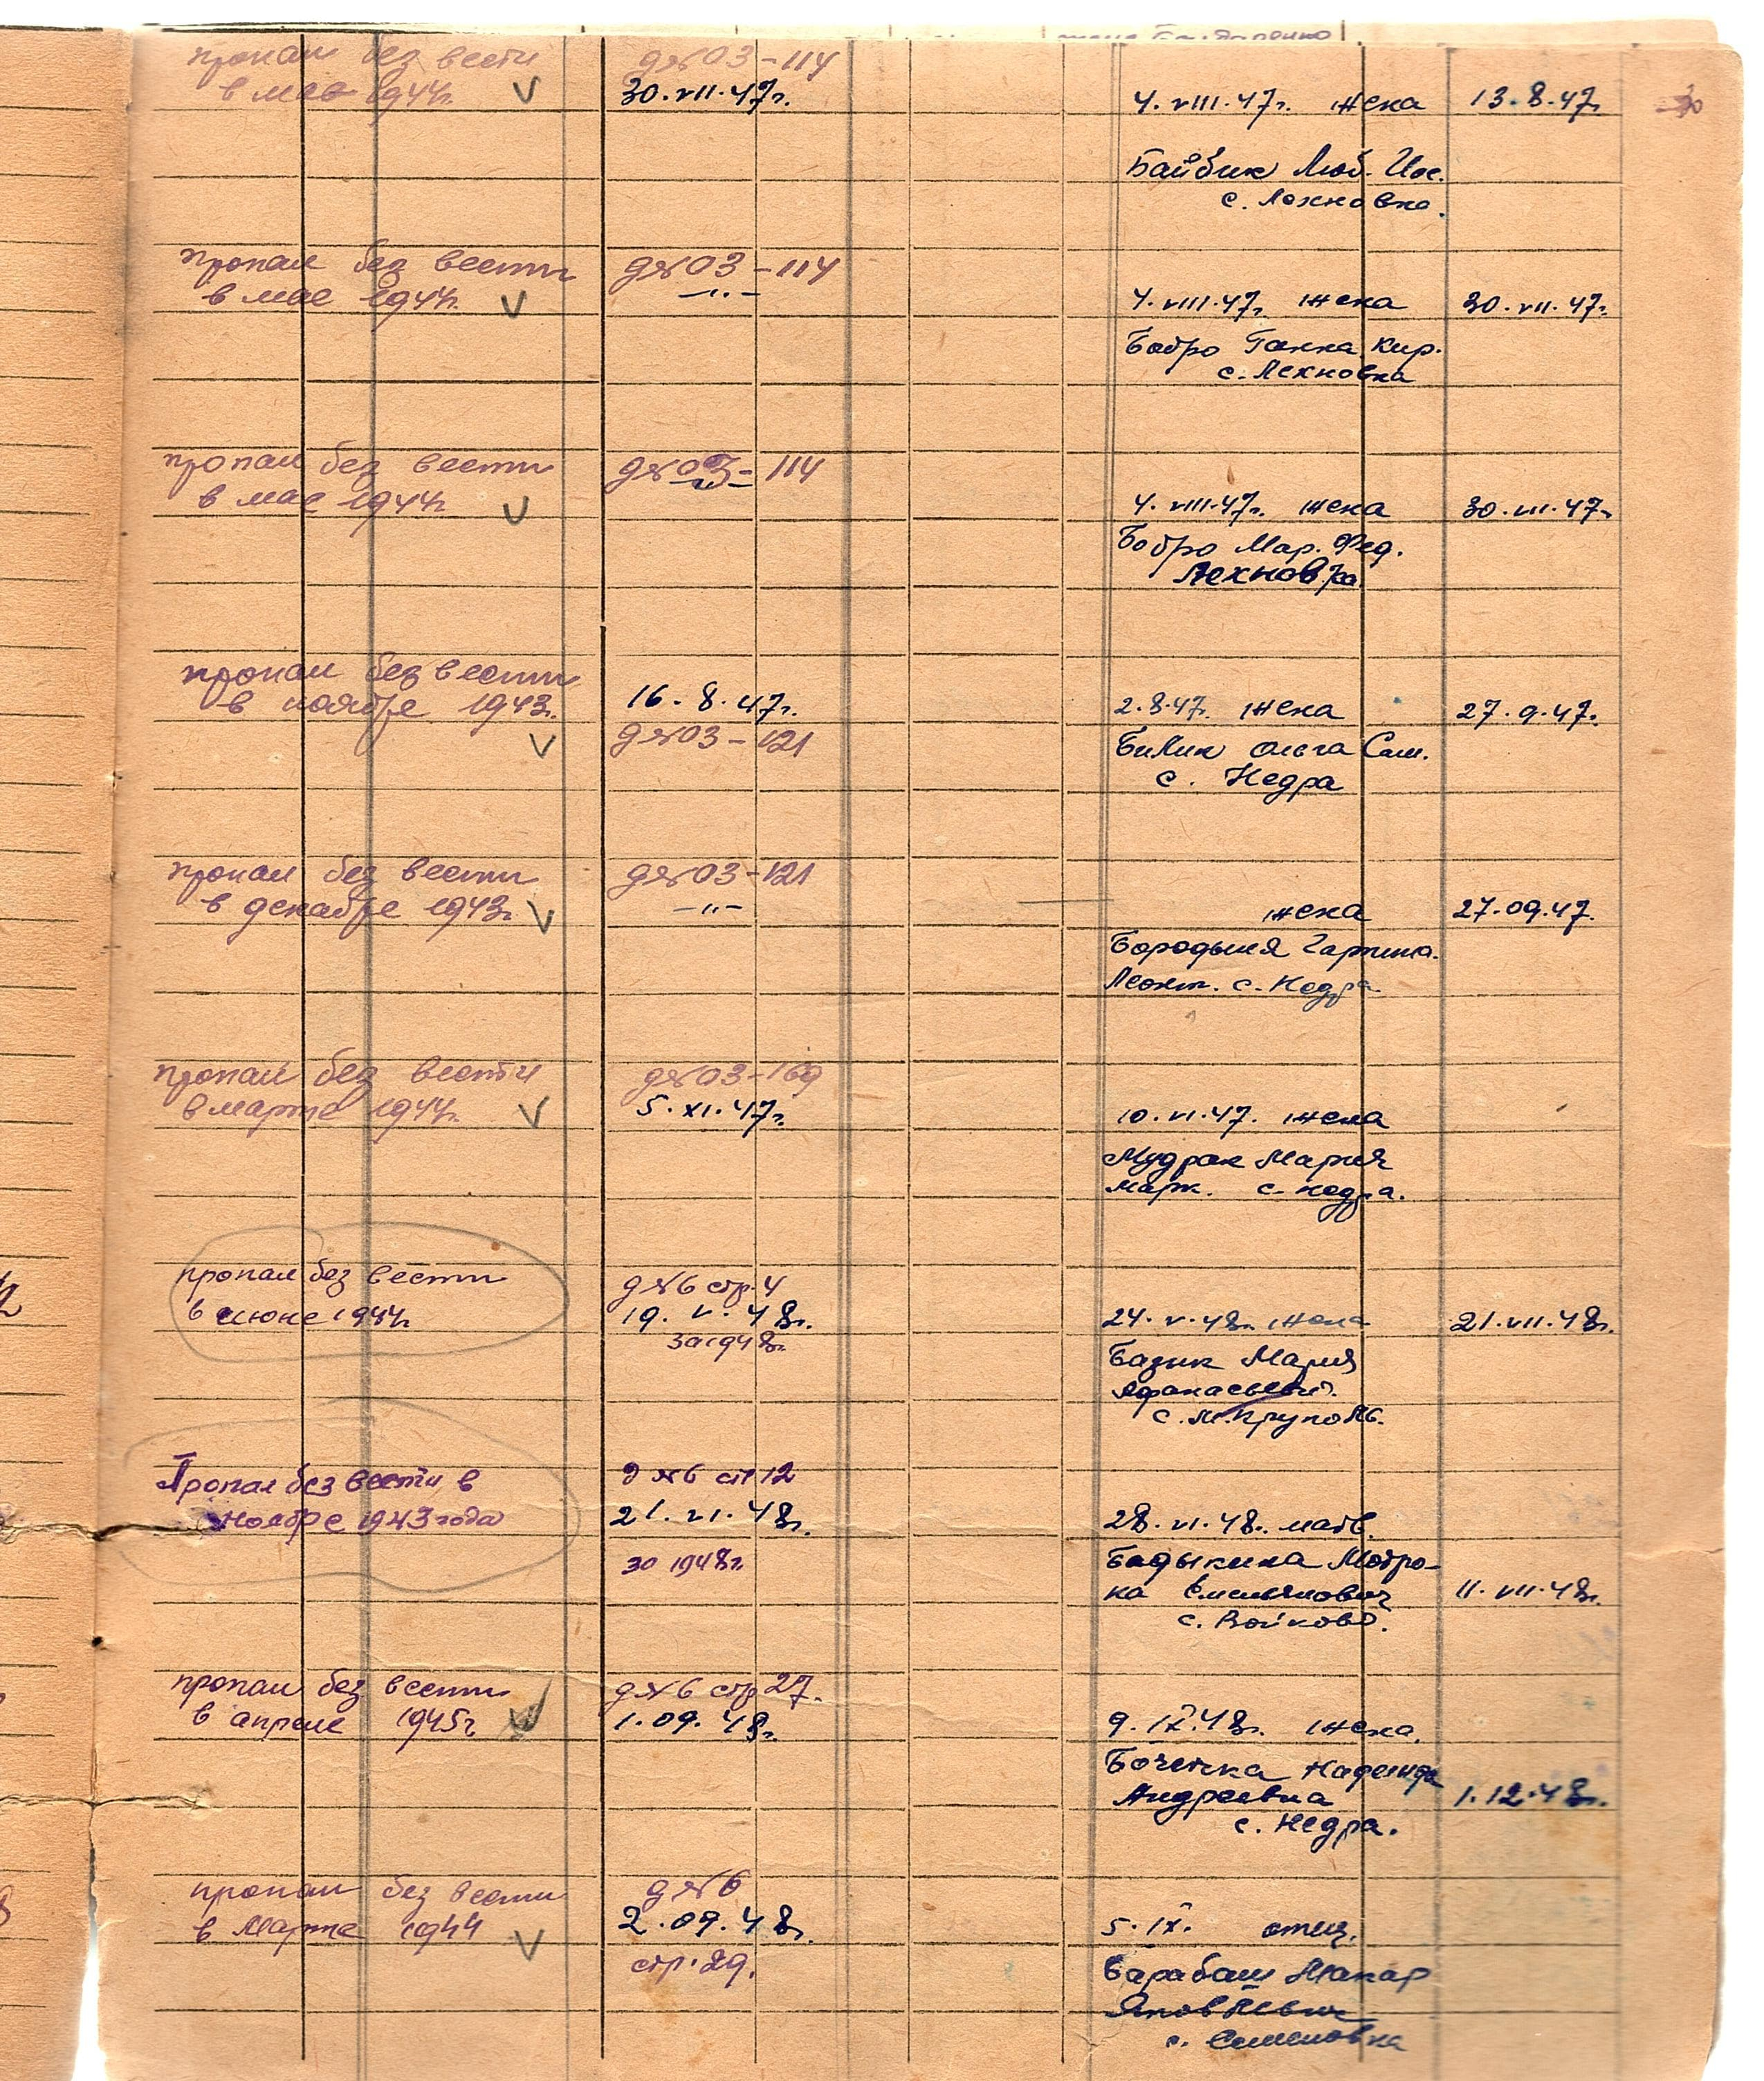 пропал без вести
в мае 1944г. V
д№03-114
30.VII.47г.
4.VIII.47г. жена
13.8.47г.
Байбик Люб. Иос.
с. Лехновка.
пропал без вести
в мае 1944г. V
д№03-114
—"—
4.VIII.47г. жена
30.VII.47г.
Бобро Ганна Кир.
с. Лехновка
пропал без вести
в мае 1944г V
д№03-114
—"—
4.VIII.47г. жена
30.VII.47г
Бобро Мар. Фед.
Лехновка
пропал без вести
в ноябре 1943г. V
16.8.47г.
д№03-121
2.8.47г. жена
27.9.47г.
Билик Ольга Сам.
с. Недра
пропал без вести
в декабре 1943г. V
д№03-121
—"—
жена
27.09.47.
Бородыня
Леонт. с. Недра
пропал без вести
в марте 1944г. V
д№03-169
5.XI.47г.
10.VI.47. жена
Мудрак Мария
Марк. с. Недра.
пропал без вести
в июне 1944г
д№6 стр.4
19.V.48г.
за 1948г.
24.V.48г. жена
21.VII.48г.
Базик Мария
с. М.Круполь.
Пропал без вести в
ноябре 1943 года
д №6 ст 12
21.VI.48г.
за 1948г.
28.VI.48г. мать.
Бадыкина Мотро-
на
с. Войково.
11.VII.48г.
пропал без вести
в апреле 1945г V
д№6 стр 27.
1.09.48г.
9.IX.48г. жена.
Надежда
Андреевна
1.12.48г.
с. Недра.
пропал без вести
в Марте 1944 V
д№6
2.09.48г.
стр.29.
5.IX. отец.
Барабаш Макар
Яковлевич
с. Семеновка